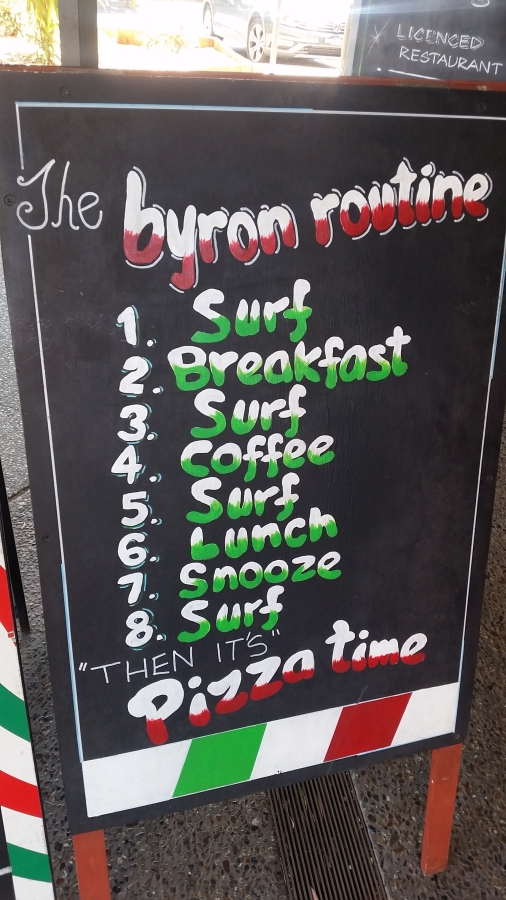 LICENCED
RESTAURANT
The byron routine
1. Surf
2. Breakfast
3. Surf
4. Coffee
5. Surf
6. Lunch
7. Snooze
8. Surf
"THEN IT'S"
Pizza time